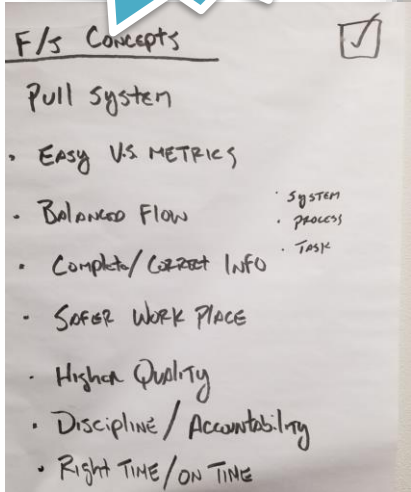 F/S Concepts
Pull System
· EASY V.S. METRICS
· BALANCED FLOW
· System
· PROCESS
· TASK
· Complete/CORRECT INFO
· SAFER WORK PLACE
· Higher Quality
· Discipline/Accountability
· Right TIME/ON TIME